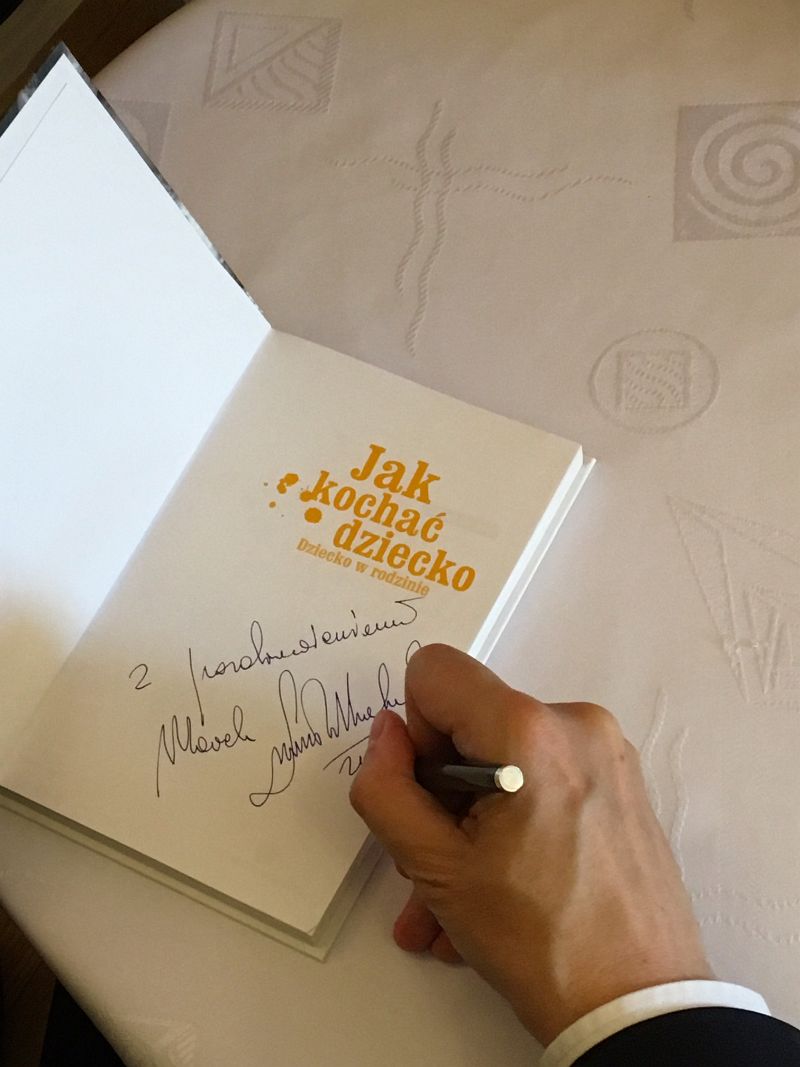 Jak
kochać
dziecko
Dziecko w rodzinie
z pozdrowieniami
Marek